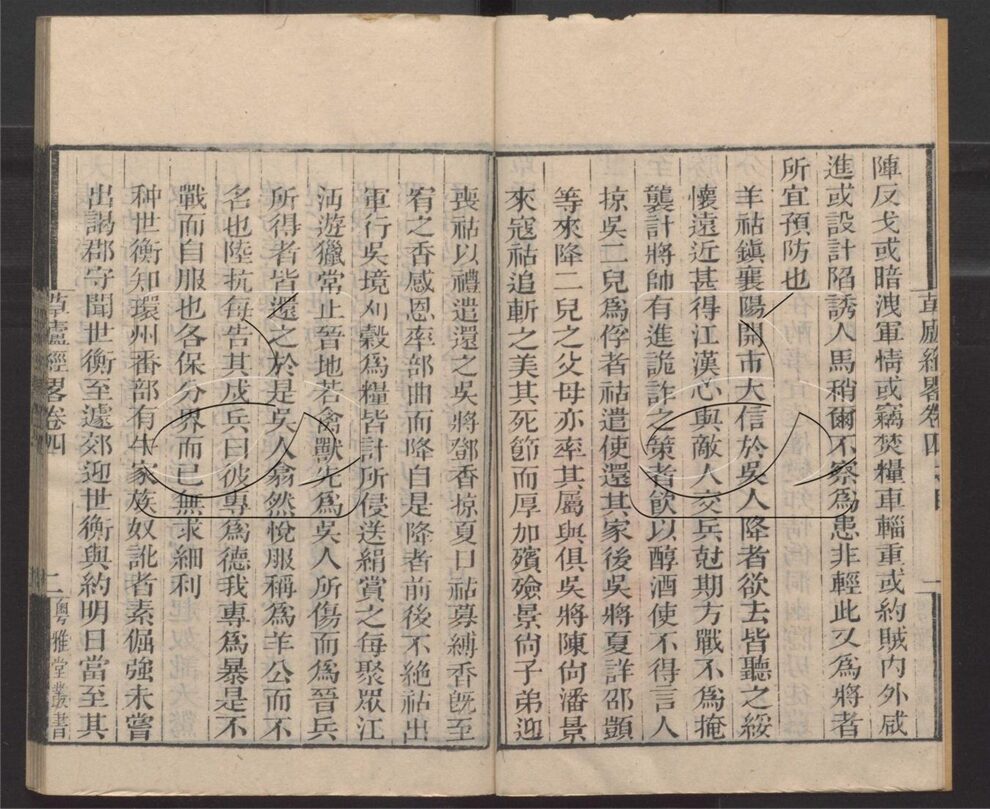 陣反戈或暗洩軍情或竊焚糧車輜重或約賊內外咸
進或設計陷誘人馬稍爾不察為患非輕此又為將者
所宜預防也
羊祜鎮襄陽開市大信於吳人降者欲去皆聽之綏
懷遠近甚得江漢心與敵人交兵尅期方戰不為掩
襲計將帥有進詭詐之策者飲以醇酒使不得言人
掠吳二兒為俘者祜遣使還其家後吳將夏詳邵顗
等來降二兒之父母亦率其屬與俱吳將陳尚潘景
來寇祜追斬之美其死節而厚加殯殮景尚子弟迎
喪祜以禮遣還之吳將鄧香掠夏口祜募縛香旣至
宥之香感恩率部曲而降自是降者前後不絕祜出
軍行吳境刈穀為糧皆計所侵送絹賞之每聚眾江
沔遊獵常止晉地若禽獸先為吳人所傷而為晉兵
所得者皆還之於是吳人翕然悅服稱為羊公而不
名也陸抗每告其戍兵曰彼專為德我專為暴是不
戰而自服也各保分界而已無求細利
种世衡知環州番部有牛家族奴訛者素倔強未嘗
出謁郡守聞世衡至遽郊迎世衡與約明日當至其
草廬經畧卷四
二
粵雅堂叢書